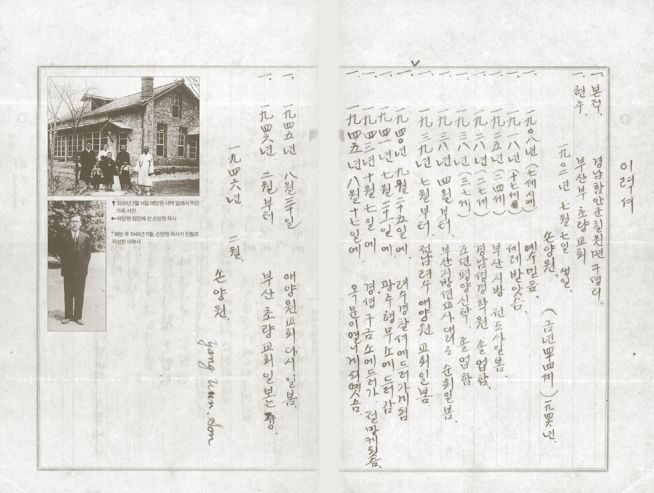 이력서
一. 본적. 경남함안군칠원면구성리
현주. 부산부 초량교회
一九〇二년 七월 七일 생일
손양원. (금년四四세) 一九四六년.
一. 一九〇八년 (七세에) 예수믿음.
一. 一九一八년 (十七세) 세례받았슴.
一. 一九二五년 (二四세) 부산지방 전도사일봄.
一. (二七세) 경남성경학원 졸업함.
一. (三七세) 조선평양신학 졸업함
一. 一九三八년 四월부터. 부산지방선교사대리로 순회일봄.
一. 一九三九년 七월부터 전남려수애양원 교회일봄
一. 一九四〇년 九월二十五일에. 려수경찰서에드러가게됨
一. 一九四一년 七월二十一일에 광주형무소에드러감
一. 一九四三년十月七일에 경성구금소에드러가. 절망게되슴.
一. 一九四五년八월十七일에 옥문이열니게되엿슴
一. 一九四五년 八월二十일 애양원교회다시일봄.
一. 一九四六년 二월부터 부산초량교회일보는중.
一九四六년 二월
손양원.
yang wun. Son
↑ 1939년 7월 14일 애양원 사택 앞에서 찍은 가족 사진
← 애양원 정문에 선 손양원 목사
* 해방 후 1946년 11월, 손양원 목사가 친필로 작성한 이력서